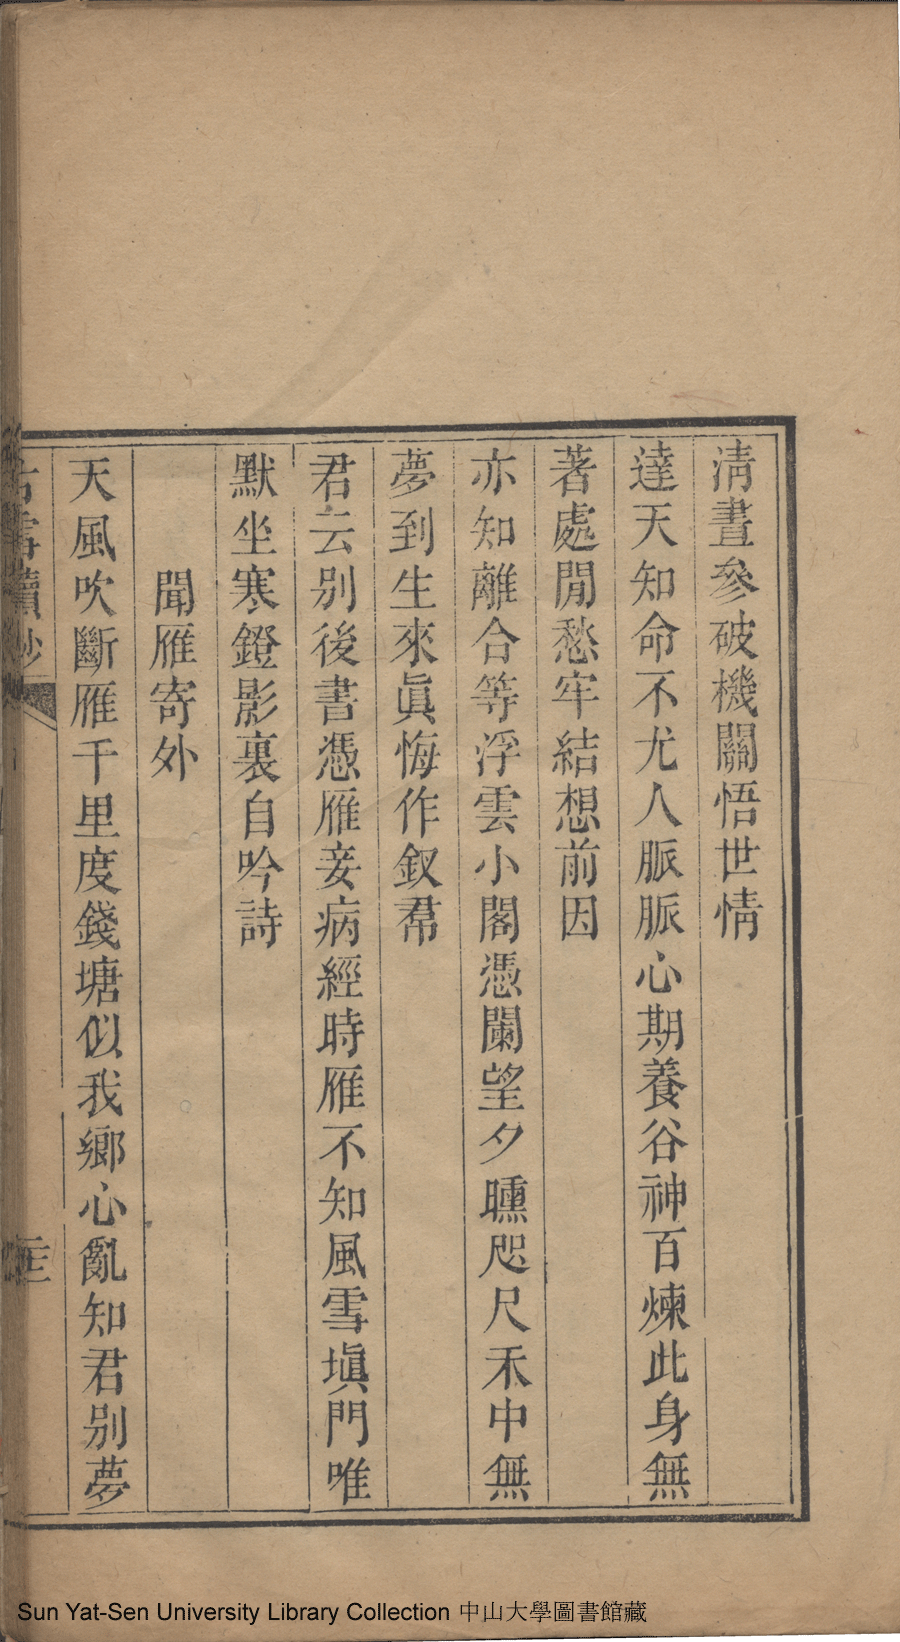 清晝參破機關悟世情
達天知命不尤人脈脈心期養谷神百煉此身無
著處閒愁牢結想前因
亦知離合等浮雲小閣憑闌望夕曛咫尺禾中無
夢到生來眞悔作釵帬
君云别後書憑雁妾病經時雁不知風雪塡門唯
默坐寒鐙影裏自吟詩
聞雁寄外
天風吹斷雁千里度錢塘似我鄉心亂知君别夢
Sun Yat-Sen University Library Collection 中山大學圖書館藏